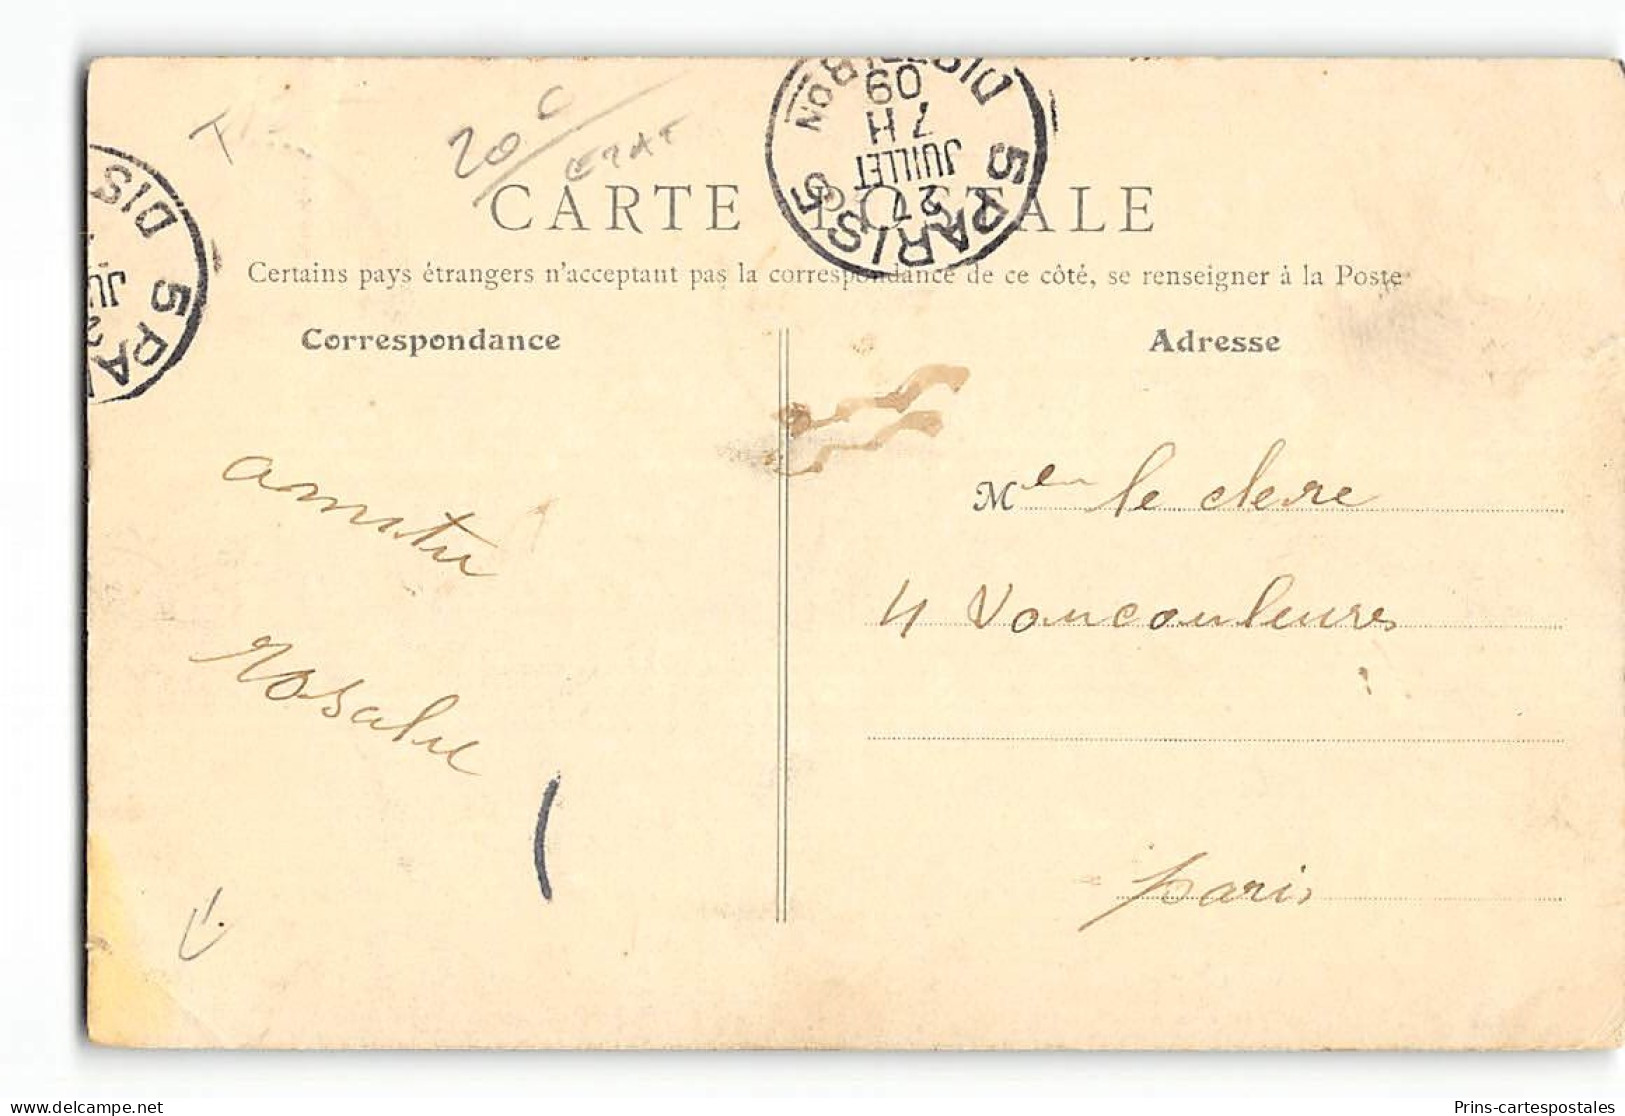 T
20c
CARTE POSTALE
5 PARIS 5
DISTRIBON
7H
27
JUILLET
09
Certains pays étrangers n'acceptent pas la correspondance de ce côté, se renseigner à la Poste
Correspondance
Adresse
5 PA
DIS
JU
2
amitié
Rosalie
M le clerc
4 Voucouleures
paris
Prins-cartespostales